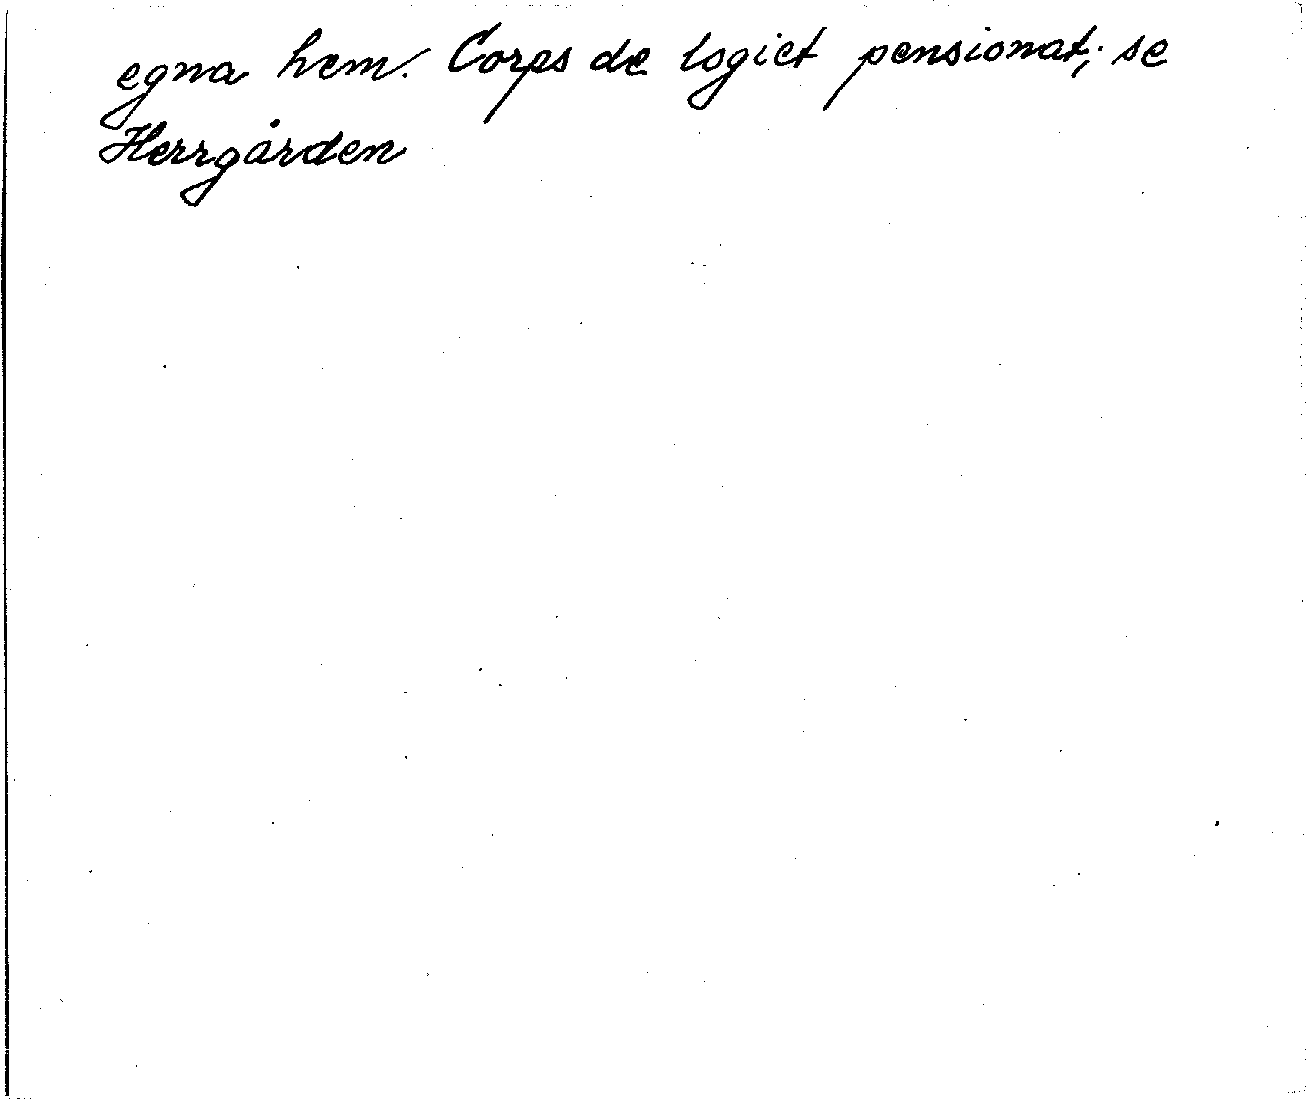 egna hem. Corps de logiet pensionat; se
Herrgården